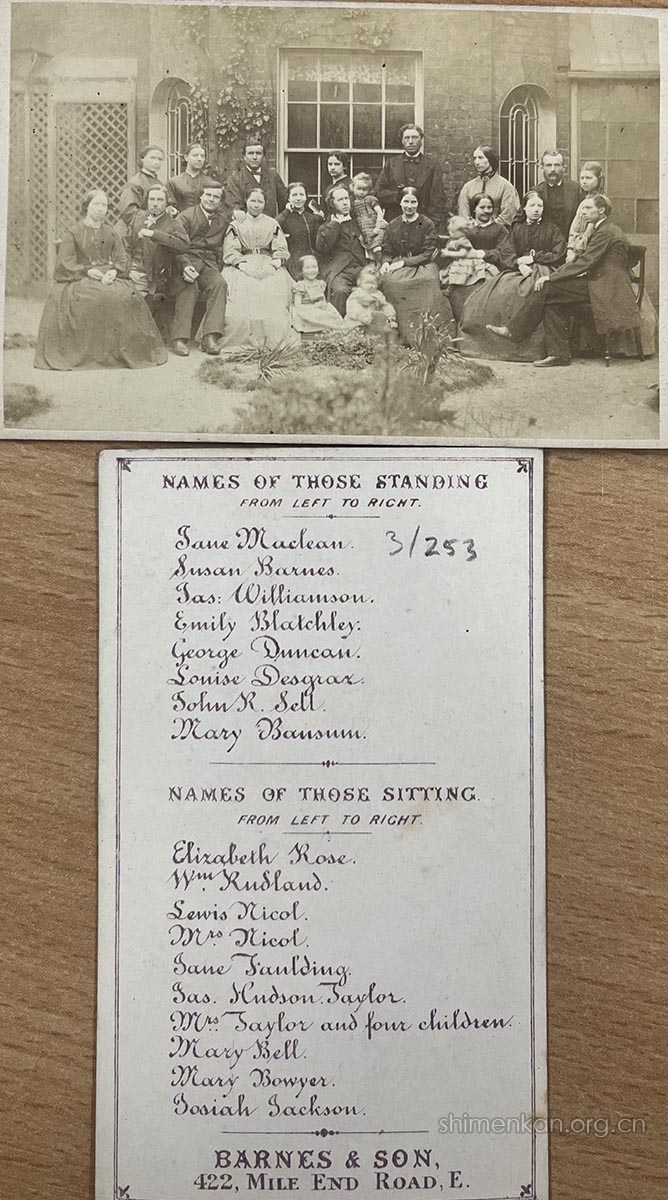 NAMES OF THOSE STANDING
FROM LEFT TO RIGHT.
Jane Maclean.
3/253
Susan Barnes.
Jas: Williamson.
Emily Blatchley.
George Duncan.
Louise Desgraz.
John R. Sell.
Mary Bausum.
NAMES OF THOSE SITTING.
FROM LEFT TO RIGHT.
Elizabeth Rose.
Wm. Rudland.
Lewis Nicol.
Mrs Nicol.
Jane Faulding.
Jas. Hudson Taylor.
Mrs Taylor and four children.
Mary Bell.
Mary Bowyer.
Josiah Jackson.
shimenkan.org.cn
BARNES & SON,
422, MILE END ROAD, E.